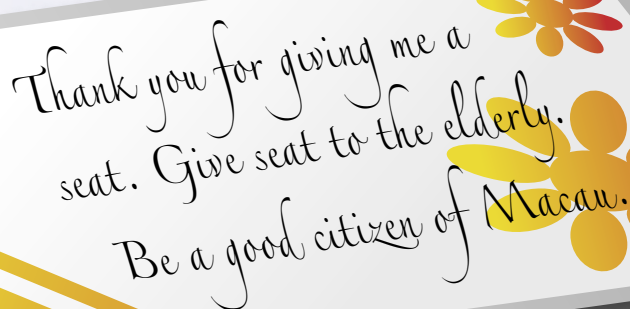 Thank you for giving me a
seat. Give seat to the elderly.
Be a good citizen of Macau.